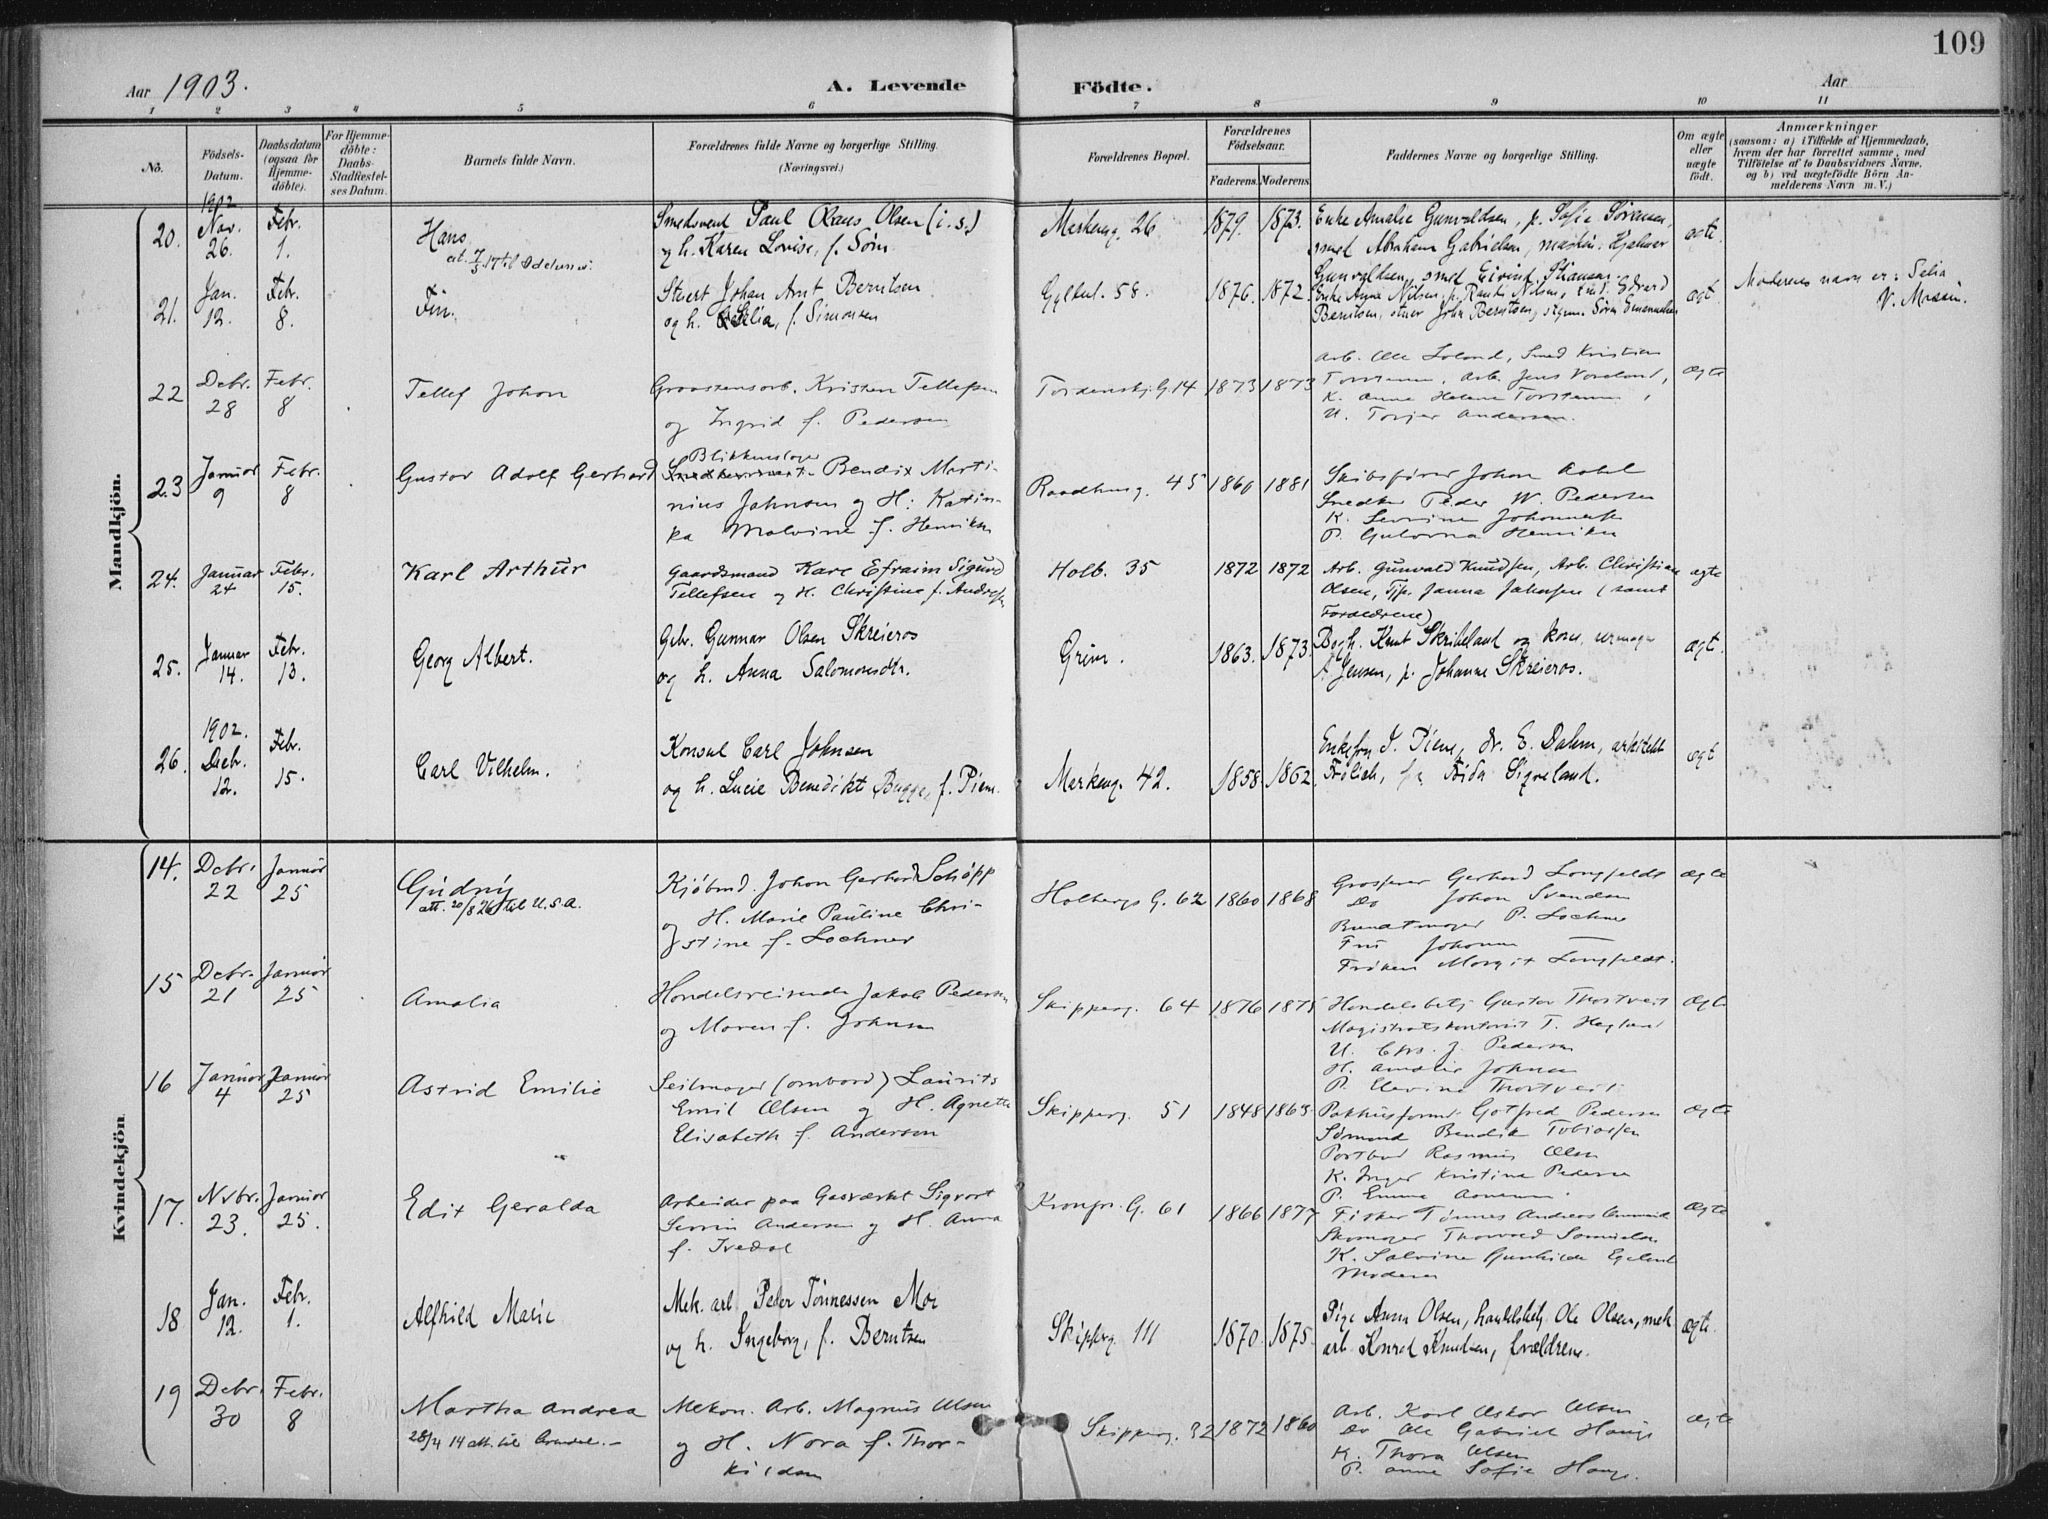 109
Aar 1903.
A. Levende Födte.
Aar
1 2 3 4 5 6 7 8 9 10 11
No.
Födsels-Datum.
Daabsdatum (ogsaa for Hjemmedöbte).
For Hjemmedöbte: Daabs-Stadfestelses Datum.
Barnets fulde Navn.
Forældrenes fulde Navne og borgerlige Stilling.
(Næringsvei.)
Forældrenes Bopæl.
Forældrenes Födselsaar.
Faderens. Moderens.
Faddernes Navne og borgerlige Stilling.
Om ægte eller uægte födt.
Anmærkninger
(saasom: a) i Tilfælde af Hjemmedaab, hvem der har forrettet samme, med Tilföielse af to Daabsvidners Navne, og b) ved uægtefödte Börn Anmelderens Navn m. V.)
Mandkjön.
20. 1902 Nov. 26. Febr. 1. Hans
Smedsvend Paul Olaus Olsen (i.s.)
og h. Karen Lovise, f. Sørn
Markeng. 26. 1879. 1873.
Enke Amalie Gunvaldsen, p. Sofie Sørensen,
smed Abraham Gabrielsen, maskin. Hjalmar
Gunvaldsen, smed Eivind
ægte.
21. Jan. 12. Febr. 8. Fin.
Stuert Johan Arnt Berntsen
og h. Selia, f. Simonsen
Gyldenl. 58. 1876. 1872.
Enke Anna Nilsen, p. Randi Nilsen, Edvard
Berntsen, John Berntsen, Sørin Emanuelsen
ægt.
Moderens navn er: Selia
22 Debr. 28 Febr. 8 Tellef Johan
Graastensarb. Kristen Tellefsen
og Ingrid f. Pedersen
Tordenskj. G. 14 1873 1873
Arb. Ole Loland, Smed Kristian
Arb. Jens
K. Anna Helene
U. Torjer Andersen.
Ægte
23 Januar 9 Febr. 8 Gustav Adolf Gerhard
Blikkenslager
Bendix Marti-
nius Johnsen og H. Katin-
ka Malvine f. Henriksen
Raadhusg. 45 1860 1881
Skibsfører Johan
Snedker Peder W. Pedersen
K. Severine
P. Henriksen
24. Januar 24 Febr. 15. Karl Arthur
Gaardsmand Karl Efraim Sigurd
Tellefsen og H. Christine f. Andersen
Holb. 35 1872 1872
Arb. Gunvald Knudsen, Arb. Christian
Olsen, Tjp. Janna Johnsen (samt
Forældrene)
ægte
25. Januar 14. Febr. 13. Georg Albert.
Gbr. Gunnar Olsen Skreieros
og h. Anna Salomonsdtr.
Grim. 1863. 1873.
Bogh. Knut Skribeland og kone, urmager
A. Jensen, p. Johanne Skreieros.
ægt.
26. 1902. Debr. 12. Febr. 15. Carl Vilhelm.
Konsul Carl Johnsen
og h. Lucie Benedikte Bugge, f. Piene.
Markeng. 42. 1858 1862.
Enkefru I. Piene, dr. E. Dahm, arkitekt
Frølich, Frida Sigveland.
ægt
Kvindekjön
14. Debr. 22 Januar 25 Gudny
att. 20/8 26 til U.S.A.
Kjøbmd. Johan Gerhard Schøpp
og H. Marie Pauline Chri-
stine f. Lochner
Holbergs G. 62 1860 1868
Grosserer Gerhard Longfeldt
Do Johan Svendsen
Buntmager P. Lochner
Fru Johanne
Frøken Margit Longfeldt.
Ægte
15 Debr. 21 Januar 25 Amalia
Handelsreisende Jakob Pedersen
og Maren f. Johnsen
Skipperg. 64 1876 1875
Handelsbetj. Gustav Thortveit
Magistratskontorist T. Hegland
U. Chr. J. Pedersen
H. Amalie Johnsen
P. Elevine Thortveit
Ægte
16 Januar 4 Januar 25 Astrid Emilie
Seilmager (ombord) Laurits
Emil Olsen og H. Agnethe
Elisabeth f. Andersen
Skipperg. 51 1848 1863
Pakhusform. Gotfred Pedersen
Sømand Bendik Tobiassen
Portbud Rasmus Olsen
K. Inger Kristine Pedersen
P. Emma
Ægte
17. Nvbr. 23. Januar 25. Edit Geralda
Arbeider paa Gasværket Sigvart
Severin Andersen og H. Anna
f. Ivedal
Kronpr. G. 61 1866 1877
Fisker Tønnes Andreas
Skomager Thorvald Samuelsen
K. Salvine Gunhilde Egeland
Moderen
Ægte
18 Jan. 12. Febr. 1. Alfhild Marie
Mek. arb. Peder Tønnessen Moe
og h. Ingeborg, f. Berntsen
Skipperg. 111 1870 1875.
Pige Anna Olsen, handelsbetj. Ole Olsen, mek.
arb. Konrad Knudsen, forældrene.
ægte.
19 Debr. 30 Febr. 8 Martha Andrea
28/4 14 att. til Arendal.
Mekan. Arb. Magnus Olsen
og H. Nora f. Thor-
kildsen
Skipperg. 32 1872 1860
Arb. Karl Oskar Olsen
Do Ole Gabriel Hauge
K. Thora Olsen
P. Anne Sofie Hauge.
Ægte